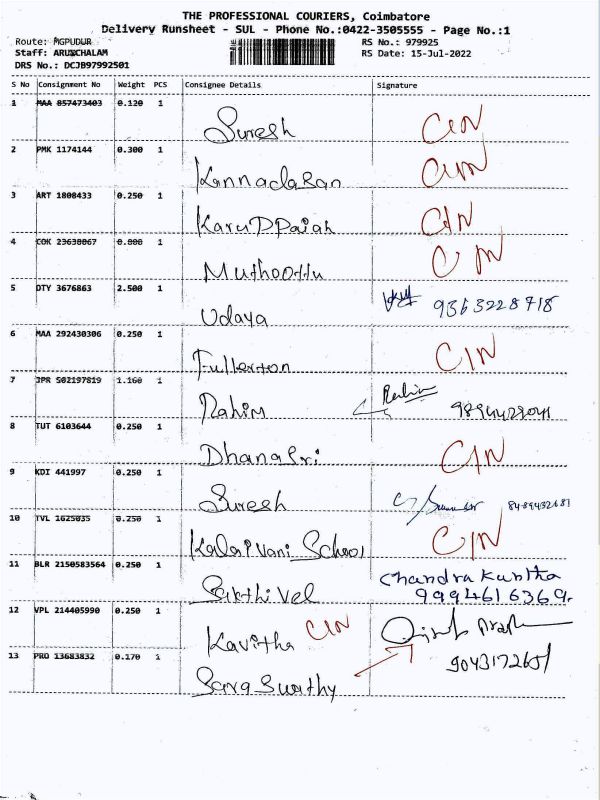 THE PROFESSIONAL COURIERS, Coimbatore
Delivery Runsheet - SUL - Phone No.:0422-3505555 - Page No.:1
Route: MGPUDUR RS No.: 979925
Staff: ARUNCHALAM RS Date: 15-Jul-2022
DRS No.: DCJB97992501
S No Consignment No Weight PCS Consignee Details Signature
1 MAA 857473403 0.120 1 Suresh CIN
2 PMK 1174144 0.300 1 Kannadasan CIN
3 ART 1808433 0.250 1 Karuppaiah CIN
4 COK 23630067 0.800 1 Muthoottu CIN
5 DTY 3676863 2.500 1 Udaya 9363228718
6 MAA 292430306 0.250 1 Fullerton CIN
7 JPR 502197819 1.160 1 Rahim Rahim
8 TUT 6103644 0.250 1 Dhanasri CIN
9 KDI 441997 0.250 1 Suresh
10 TVL 1625035 0.250 1 Kalaivani School CIN
11 BLR 2150583564 0.250 1 Sakthivel Chandra Kantha
9994616369.
12 VPL 214405990 0.250 1 Kavitha CIN
13 PRO 13683832 0.170 1 Saraswathy 9043172651